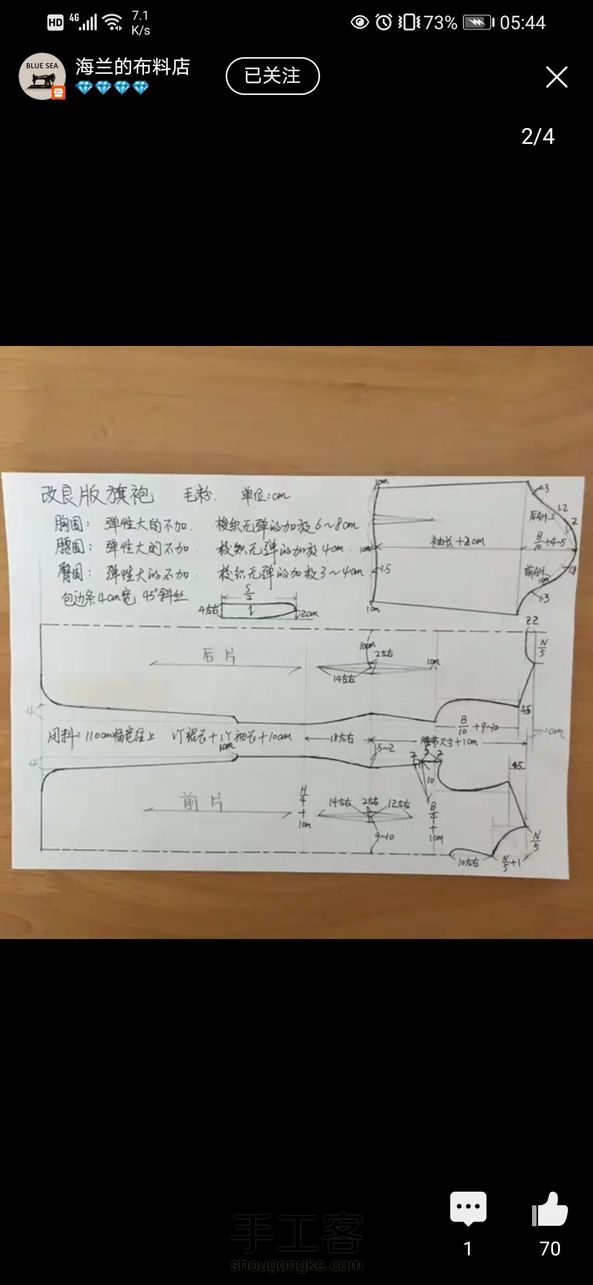 HD 4G 7.1 K/s 73% 05:44
BLUE SEA
海兰的布料店
已关注
2/4
改良版旗袍 毛粉. 单位:cm
胸围: 弹性大的不加. 梭织无弹的加放6~8cm
腰围: 弹性大的不加. 梭织无弹的加放4cm.
臀围: 弹性大的不加. 梭织无弹的加放3~4cm.
包边条4cm宽, 45°斜丝
4左右
2cm
1cm
袖长+2cm
B/10+4~5
后AH
前AH
1.3
1.2
2
1.5
1cm
1cm
1.3
22
N/5
后片
10cm
2左右
14左右
1cm
45
4
用料: 110cm幅宽 1个裙长+1个袖长+10cm
1cm
18左右
B/10+9~10
腰节尺寸+1cm
1cm
4
1.5~2
2
2
10
45
前片
H/4+1cm
14左右
2左右
12左右
B/4+1cm
9~10
10左右
N/5+1
N/5
手工客
shougongke.com
1
70